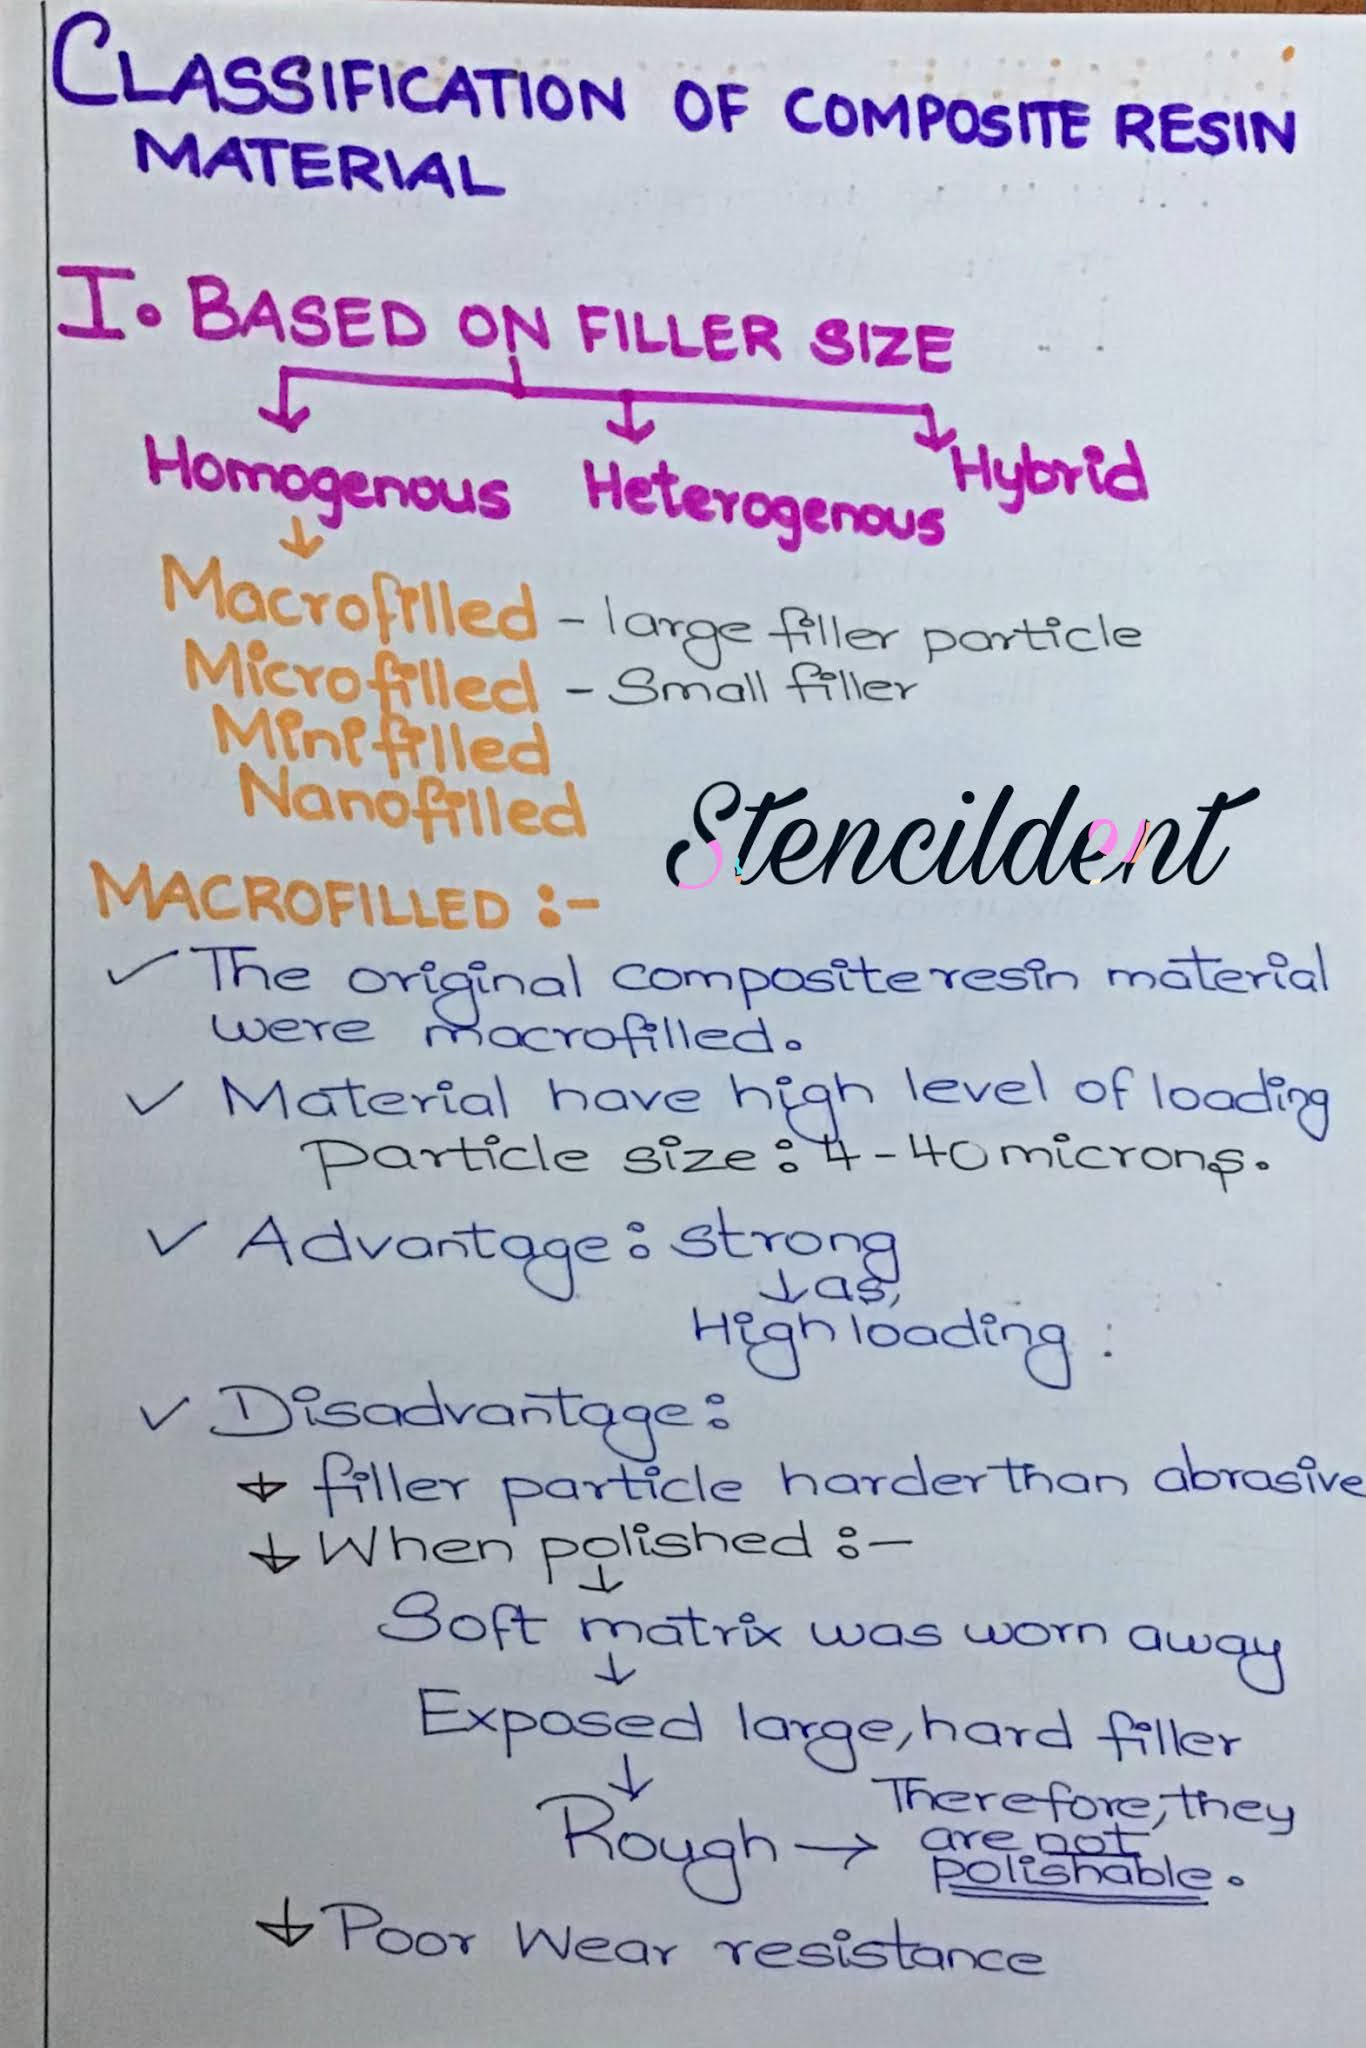 CLASSIFICATION OF COMPOSITE RESIN
MATERIAL
I. BASED ON FILLER SIZE
Homogenous Heterogenous Hybrid
Macrofilled - large filler particle
Microfilled - Small filler
Minifilled
Nanofilled
Stencildent
MACROFILLED :-
✓ The original composite resin material
were macrofilled.
✓ Material have high level of loading
Particle size: 4-40 microns.
✓ Advantage: strong
↓ as,
High loading
✓ Disadvantage:
↓ filler particle harder than abrasive
↓ When polished :-
↓
Soft matrix was worn away
↓
Exposed large, hard filler
↓
Rough → Therefore, they
are not
polishable.
↓ Poor Wear resistance